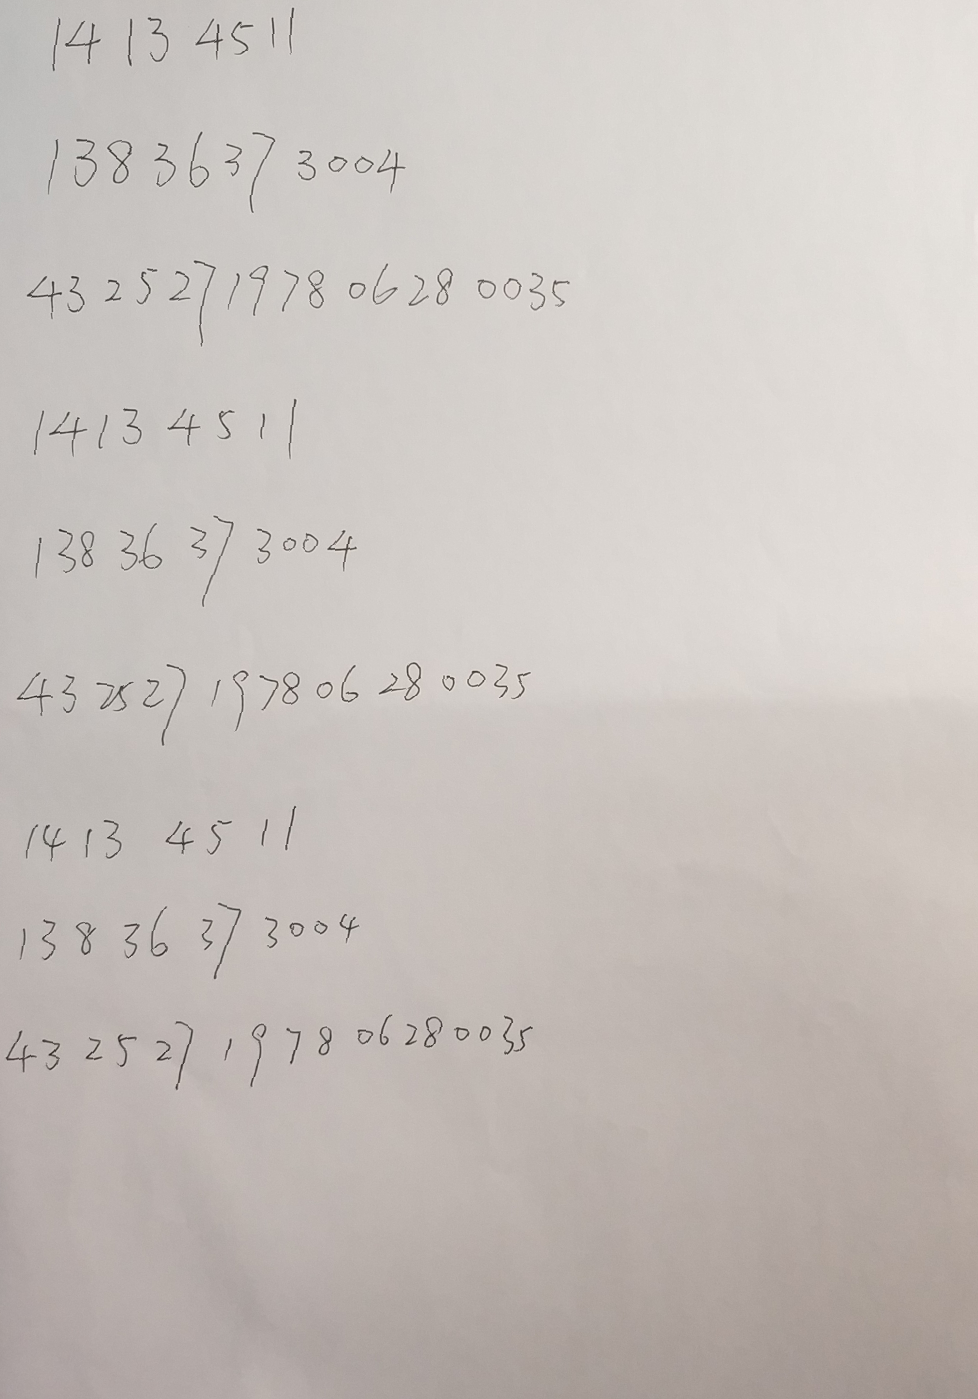 14 13 45 11
138 36 37 3004
43 25 27 1978 06 28 0035
14 13 45 11
138 36 37 3004
43 25 27 1978 06 28 0035
14 13 45 11
138 36 37 3004
43 25 27 1978 06 28 0035